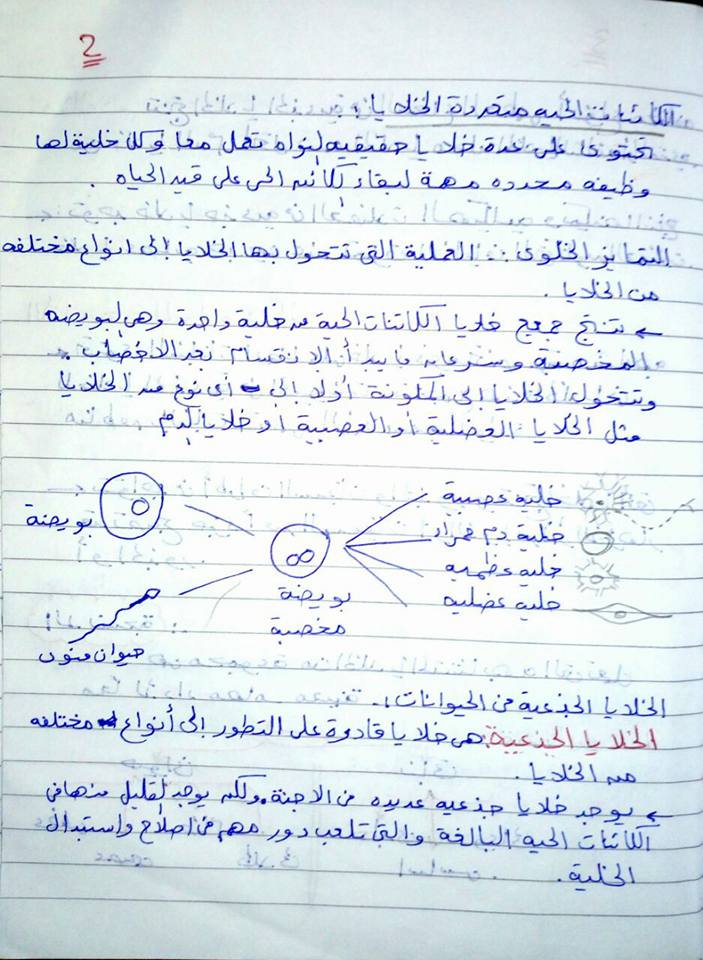 2
الكائنات الحيه متعددة الخلايا :
تحتوى على عدة خلايا حقيقيه النواه تعمل معا وكل خلية لها
وظيفه محدده مهمة لبقاء الكائن الحى على قيد الحياه .
التمايز الخلوى : العملية التى تتحول بها الخلايا إلى انواع مختلفه
من الخلايا .
← تنتج جميع خلايا الكائنات الحية من خلية واحدة وهى البويضه
المخصبة وسرعان ما يبدأ الانقسام بعد الاخصاب .
وتتحول الخلايا المكونة أولا إلى أى نوع من الخلايا
مثل الخلايا العضلية أو العصبية او خلايا الدم
بويضة
حيوان منوى
بويضة
مخصبة
خليه عصبية
خلية دم حمراء
خليه عظميه
خليه عضليه
الخلايا الجذعية فى الحيوانات :
الخلايا الجذعية : هى خلايا قادرة على التطور إلى أنواع مختلفه
من الخلايا .
← يوجد خلايا جذعيه عديده فى الاجنة . ولكن يوجد القليل منها فى
الكائنات الحيه البالغة والتى تلعب دور مهم فى اصلاح واستبدال
الخلية .